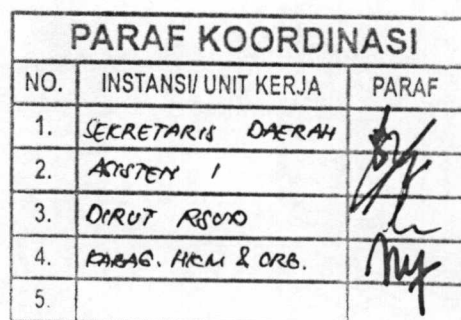 PARAF KOORDINASI
NO. INSTANSI/ UNIT KERJA PARAF
1. SEKRETARIS DAERAH
2. ASISTEN I
3. DIRUT RSUD
4. KABAG. HKM & ORB.
5.